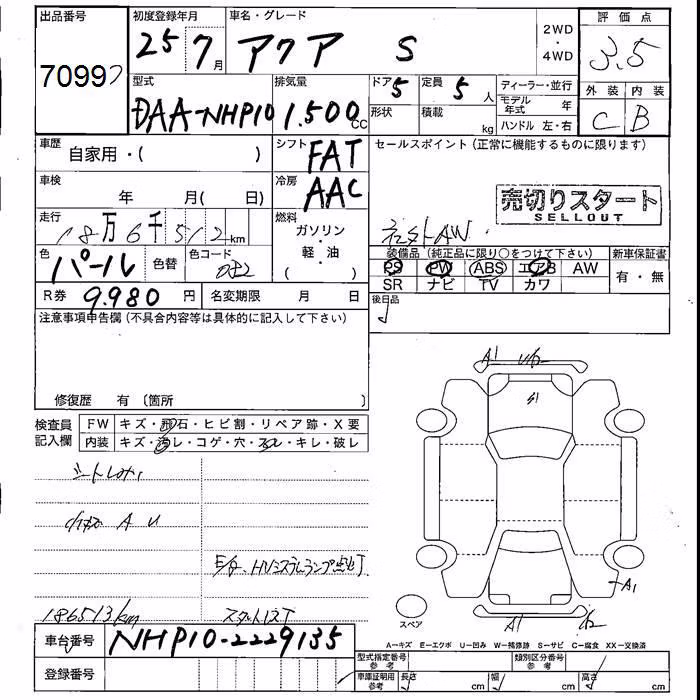 出品番号 初度登録年月 車名・グレード 評価点
70992 25 7月 アクア S 2WD・4WD 3.5
型式 排気量 ドア 5 定員 5人 ディーラー・並行 外装 内装
DAA-NHP10 1.500cc 形状 積載 kg モデル年式 年 C B
ハンドル 左・右
車歴 自家用・( ) シフト FAT セールスポイント(正常に機能するものに限ります)
車検 年 月( 日) 冷房 AAC
売切りスタート
SELLOUT
走行 18万6千512km 燃料 ガソリン・軽油 ( ) 社外AW
色 パール 色替 色コード 082 装備品(純正品に限り○をつけて下さい) 新車保証書
PS PW ABS エアB AW 有・無
SR ナビ TV カワ
R券 9.980円 名変期限 月 日 後日品
注意事項申告欄(不具合内容等は具体的に記入して下さい)
修復歴 有 〔箇所 〕
A1 U2
S1
検査員記入欄 FW キズ・飛石・ヒビ割・リペア跡・X要
内装 キズ・汚レ・コゲ・穴・スレ・キレ・破レ
A U
E/g、HVシステムランプ点灯
A1
186513km
スペア
A1 A2
車台番号 NHP10-2229135
A=キズ E=エクボ U=凹み W=補修跡 S=サビ C=腐食 XX=交換済
登録番号 型式指定番号 参考 類別区分番号 参考
車庫証明用 参考 長さ cm 幅 cm 高さ cm